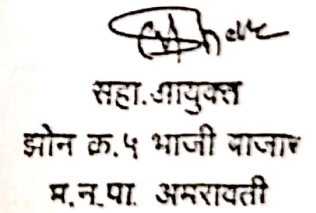 सहा.आयुक्त
झोन क्र.५ भाजी बाजार
म.न.पा. अमरावती